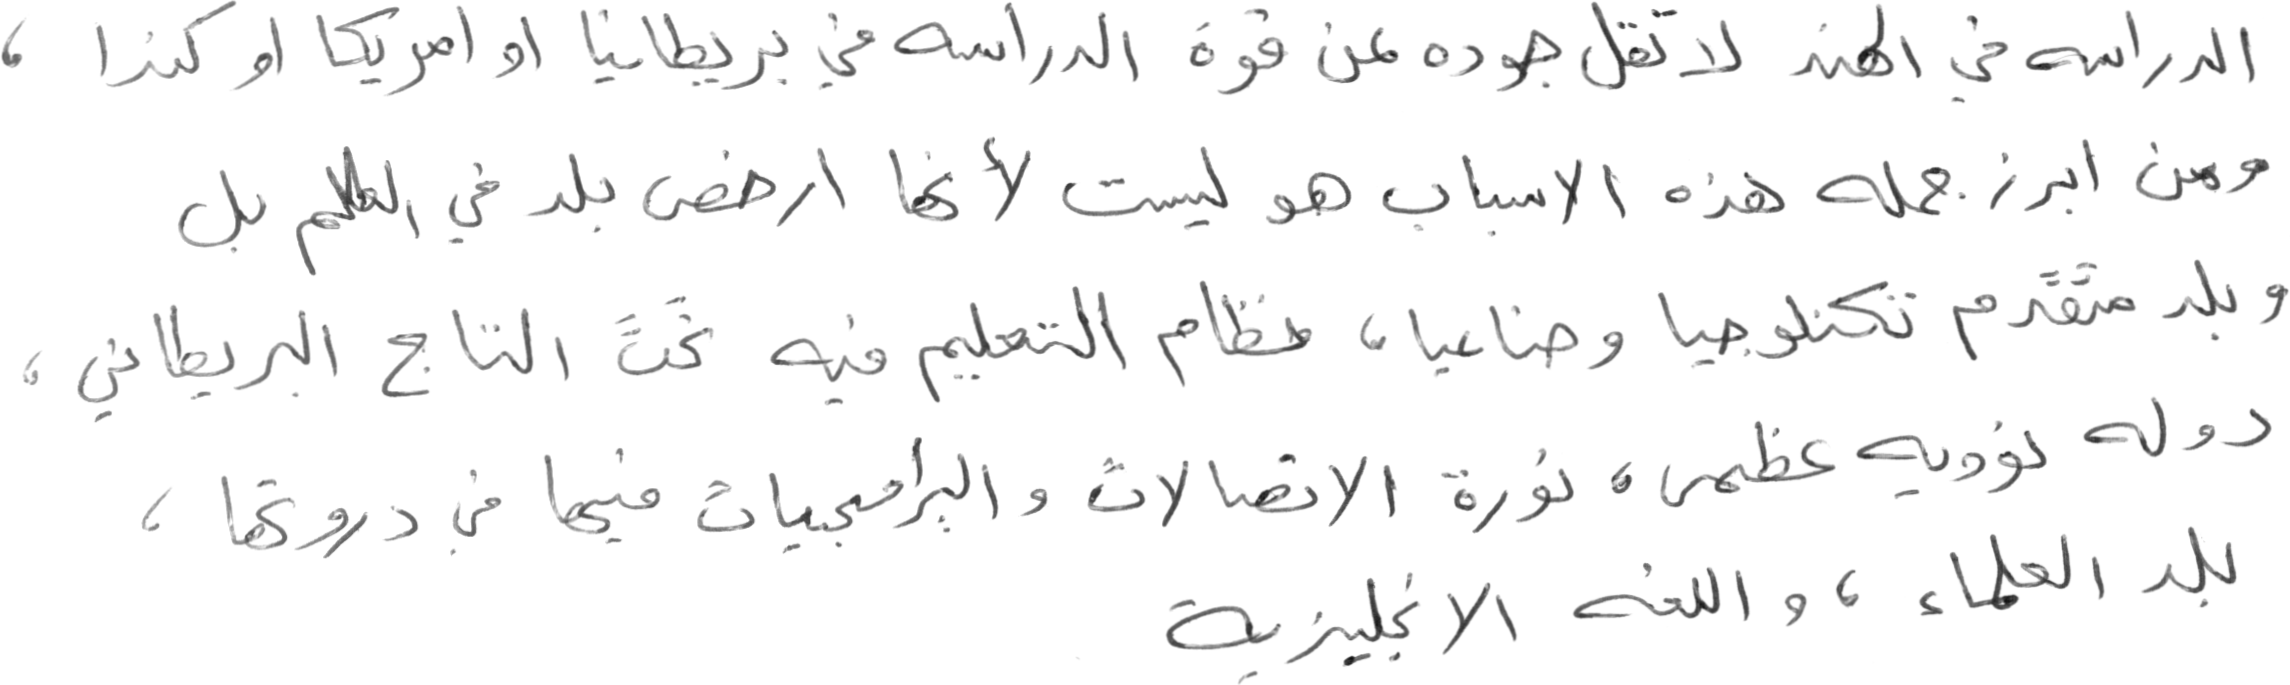 الدراسه في الهند لا تقل جوده عن قوة الدراسه في بريطانيا او امريكا او كندا ،
ومن ابرز جمله هذه الاسباب هو ليست لأنها ارخص بلد في العالم بل
وبلد متقدم تكنلوجيا وصناعيا ، نظام التعليم فيه تحت التاج البريطاني ،
دوله نوويه عظمى ، ثورة الاتصالات والبرامجيات فيها في دروتها ،
بلد العلماء ، واللغه الانجليزية